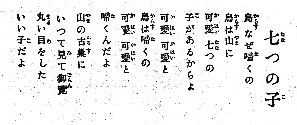 七つの子
烏なぜ啼くの
烏は山に
可愛七つの
子があるからよ
可愛 可愛と
烏は啼くの
可愛 可愛と
啼くんだよ
山の古巣に
いつて見て御覧
丸い目をした
いい子だよ